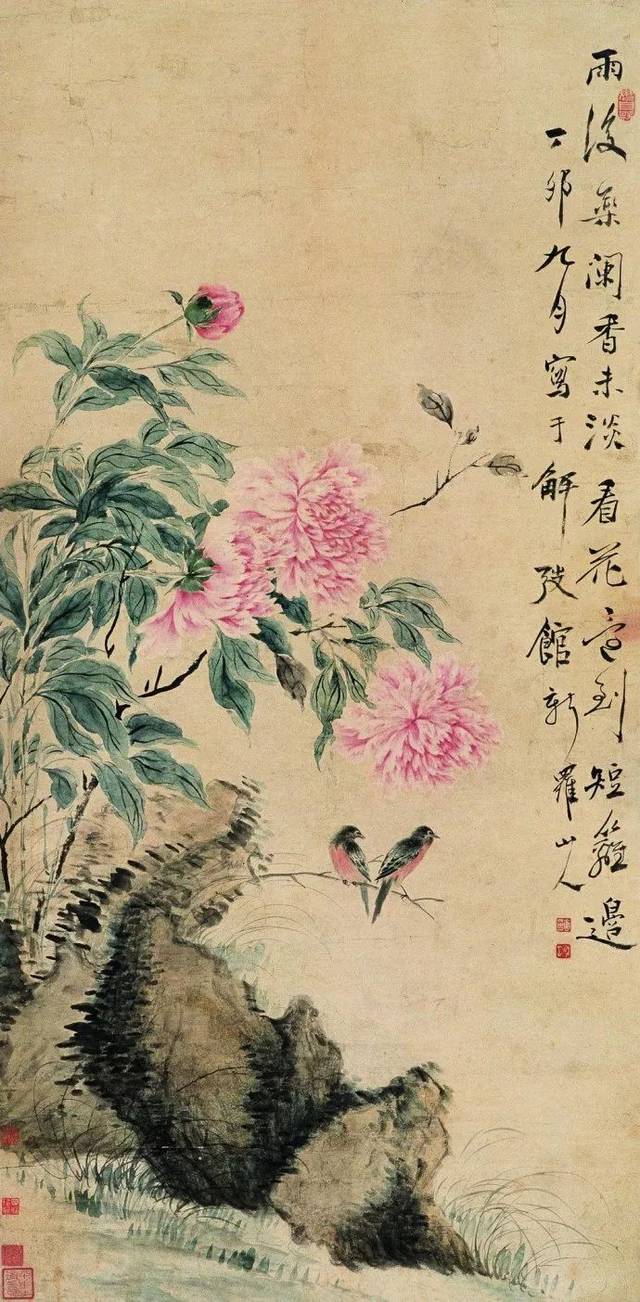 雨後藥闌香未淡看花意到短籬邊
丁卯九月寫于解弢館新羅山人